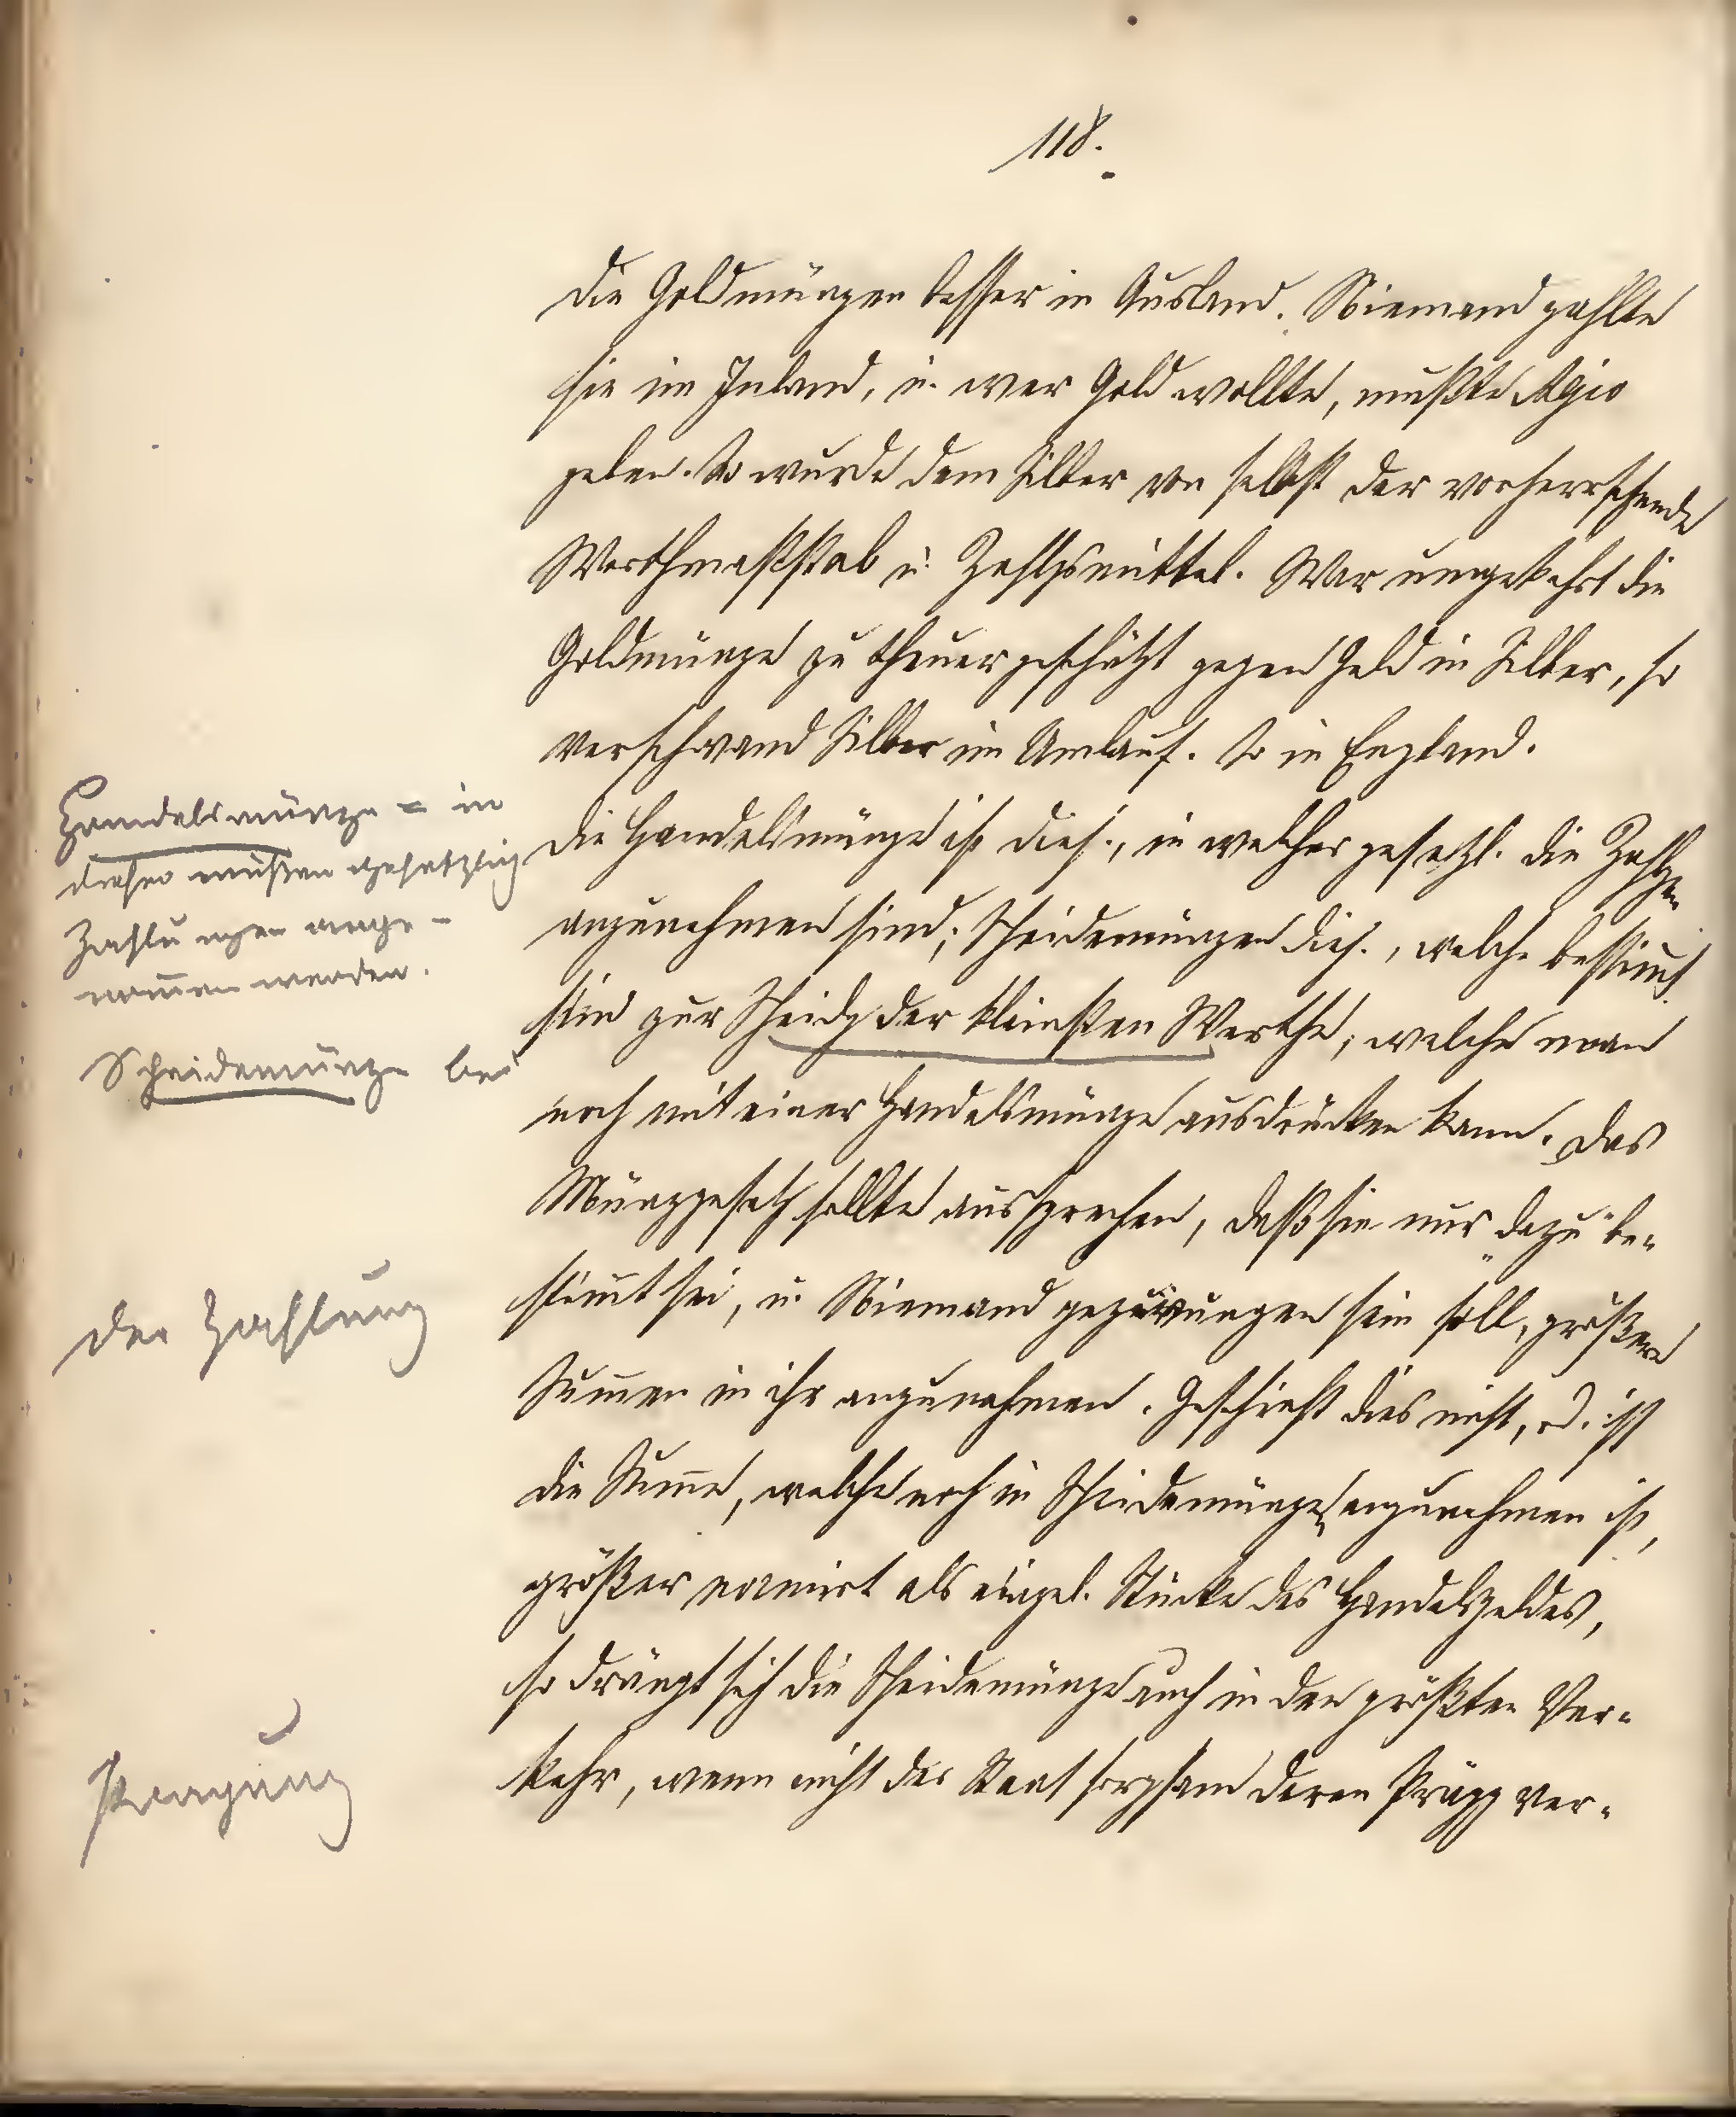 118.
die Goldmünzen besser in Ausland. Niemand zahlte
sie im Inland, u. wer Gold wollte, mußte Agio
geben. So wurde dem Silber von selbst der vorherrschende
Werthmaßstab u. Zahlgsmittel. War umgekehrt die
Goldmünze zu theuer geschätzt gegen Geld in Silber, so
verschwand Silber im Umlauf. So in England.
Handelsmünze = in
dieser müßen gesetzlich
Zahlungen ange-
nom̄en werden.
die Handelsmünze ist dies., in welcher gesetzl. die Zahlgen
anzunehmen sind; Scheidemünzen dies., welche bestim̄t
Scheidemünze bei
sind zur Scheidg der kleinsten Werthe, welche man
noch mit einer Handelsmünze ausdrücken kann. Das
Münzgesetz sollte aussprechen, daß sie nur "dazu" be-
der Zahlung
stim̄t sei, u. Niemand gezwungen sein soll, größere
Sum̄en in ihr anzunehmen. Geschieht dies nicht, od. ist
die Sum̄e, welche noch in Scheidemünze anzunehmen ist,
größer normirt als einzel. Stücke des Handelsgeldes,
so drängt sich die Scheidemünze auch in den größten Ver-
Prägung
kehr, wenn nicht der Staat sorgsam deren Prägg ver-